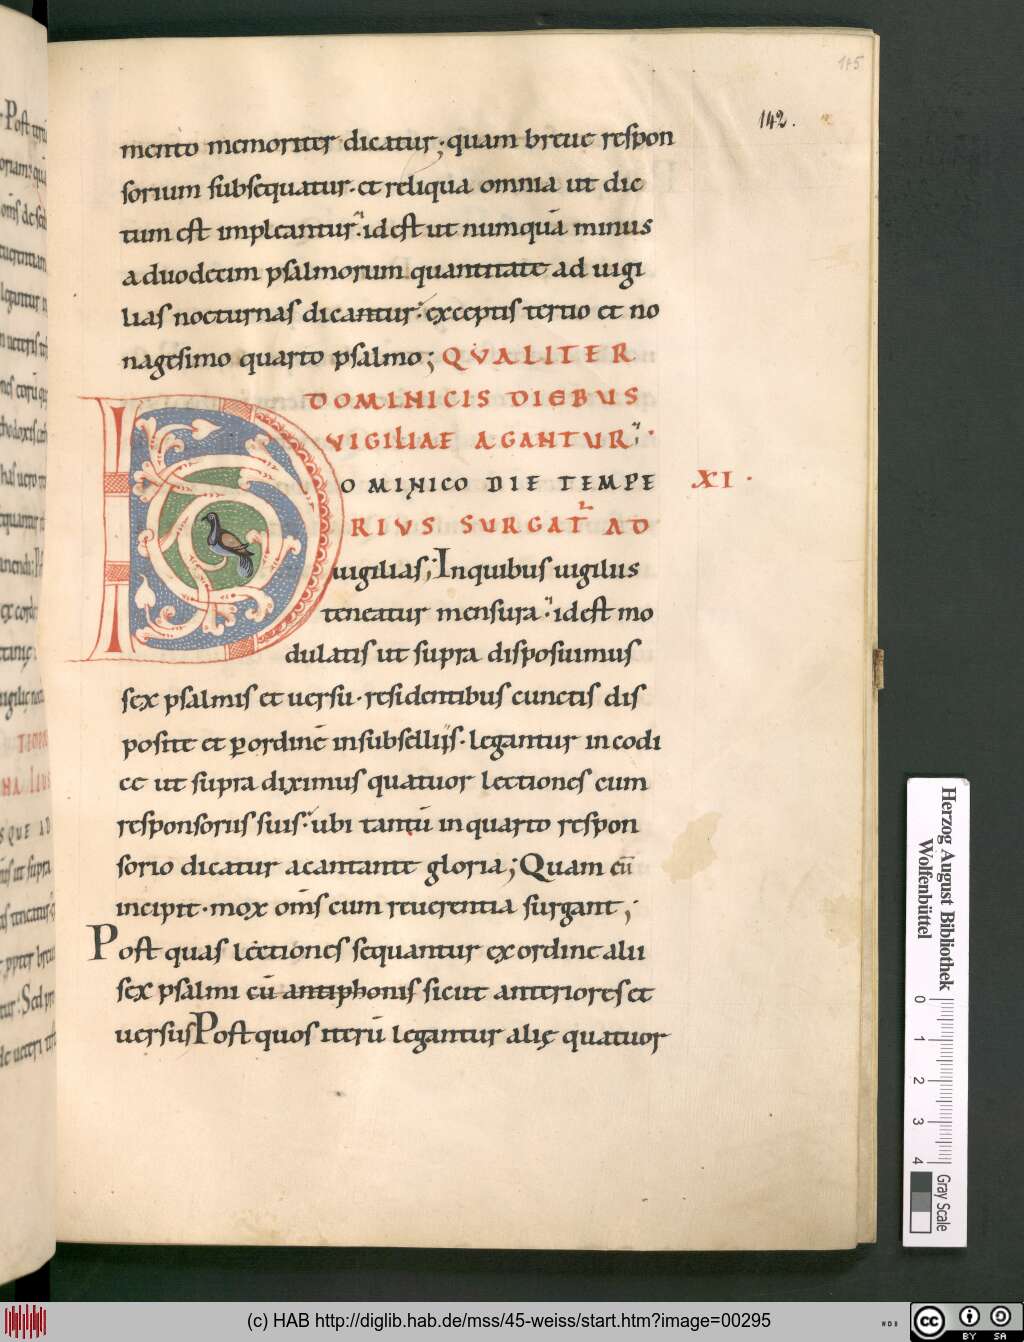 145
142.
mento memoriter dicatur; quam breue respon
sorium subsequatur. et reliqua omnia ut dic
tum est impleantur: id est ut numquā minus
a duodecim psalmorum quantitate ad uigi
lias nocturnas dicantur: exceptis tertio et no
nagesimo quarto psalmo; QVALITER
DOMINICIS DIEBUS
VIGILIAE AGANTUR:
DOMINICO DIE TEMPE
XI.
RIUS SURGATᷣ AD
uigilias; In quibus uigiliis
teneatur mensura: id est mo
dulatis ut supra disposuimus
sex psalmis et uersu. residentibus cunctis dis
posite et ꝑ ordinē in subselliis. legantur in codi
ce ut supra diximus quatuor lectiones cum
responsoriis suis: ubi tantū in quarto respon
sorio dicatur a cantante gloria; Quam cū
incipit. mox om̄s cum reuerentia surgant;
Post quas lectiones sequantur ex ordine alii
sex psalmi cū antiphonis sicut anteriores et
uersus Post quos iterū legantur alię quatuor
Herzog August Bibliothek
Wolfenbüttel
0 1 2 3 4
Gray Scale
(c) HAB http://diglib.hab.de/mss/45-weiss/start.htm?image=00295
WDB
cc BY SA